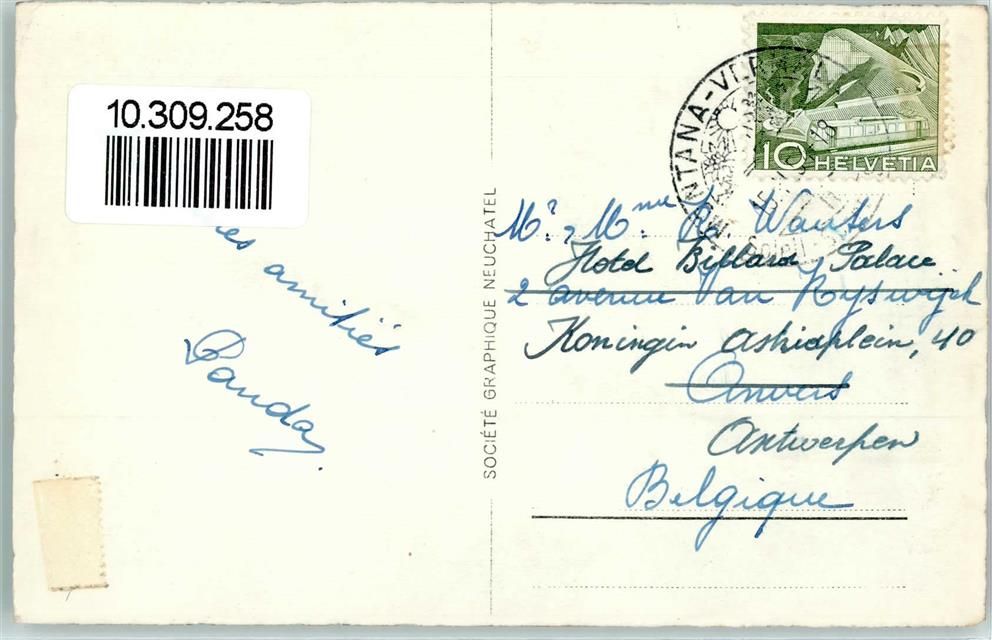 10.309.258
amitiés
SOCIÉTÉ GRAPHIQUE NEUCHATEL
NTANA-VER
10 HELVETIA
Mr. & Mme R. Wauters
Hotel Billard Palace
2 avenue Van Ryswijck
Koningin Astridplein, 40
Anvers
Antwerpen
Belgique